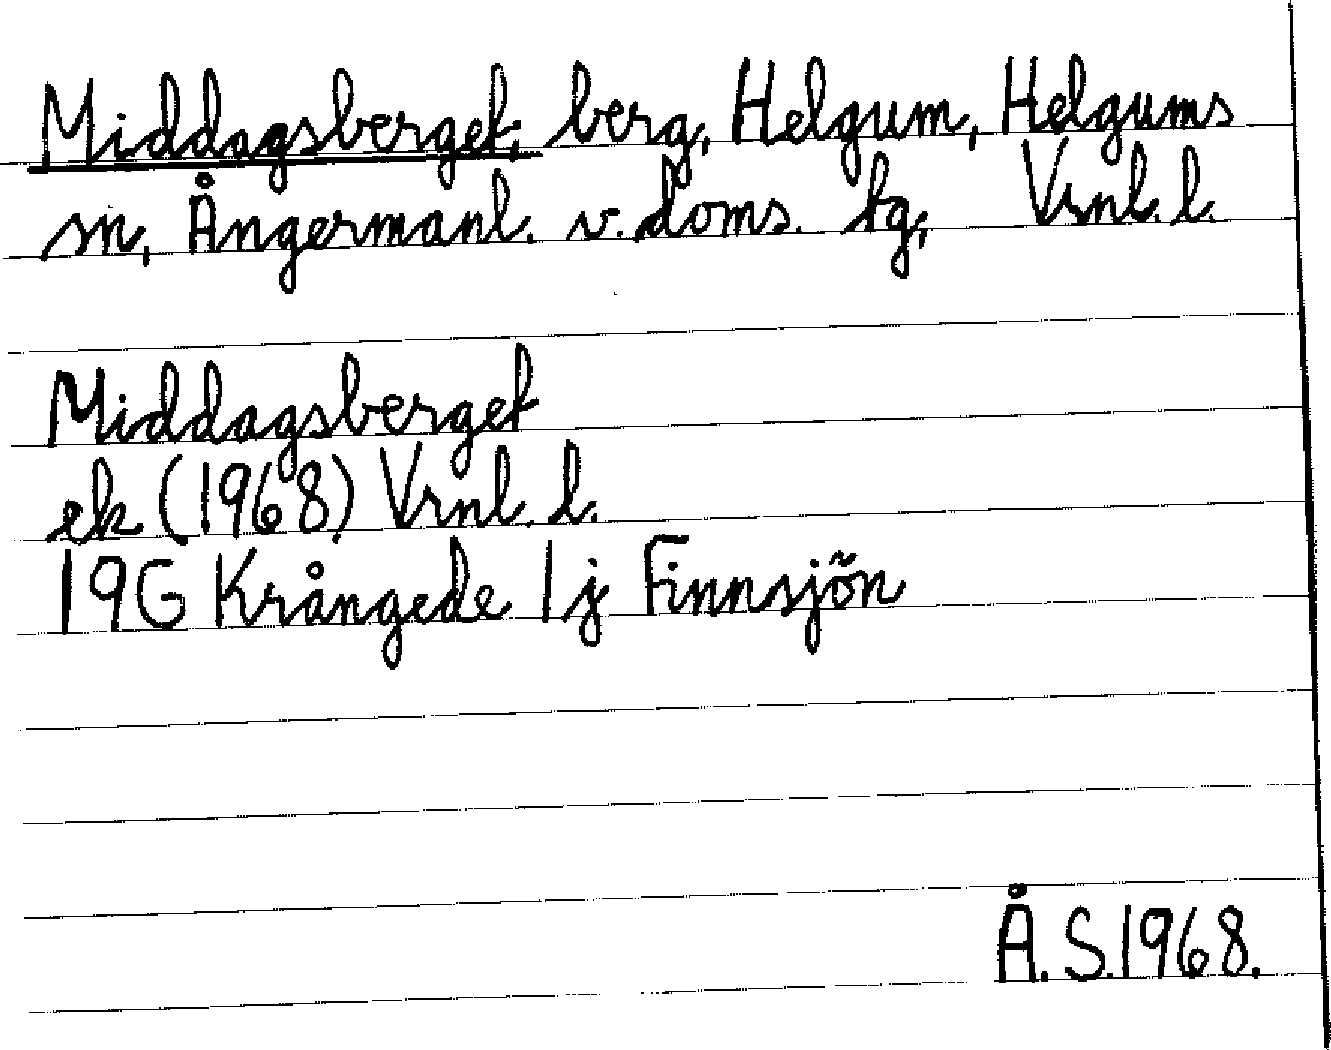 Middagsberget, berg, Helgum, Helgums
sn, Ångermanl. v. doms. tg, Vrnl. l.
Middagsberget
ek (1968) Vrnl. l.
19G Krångede 1j Finnsjön
Å. S. 1968.